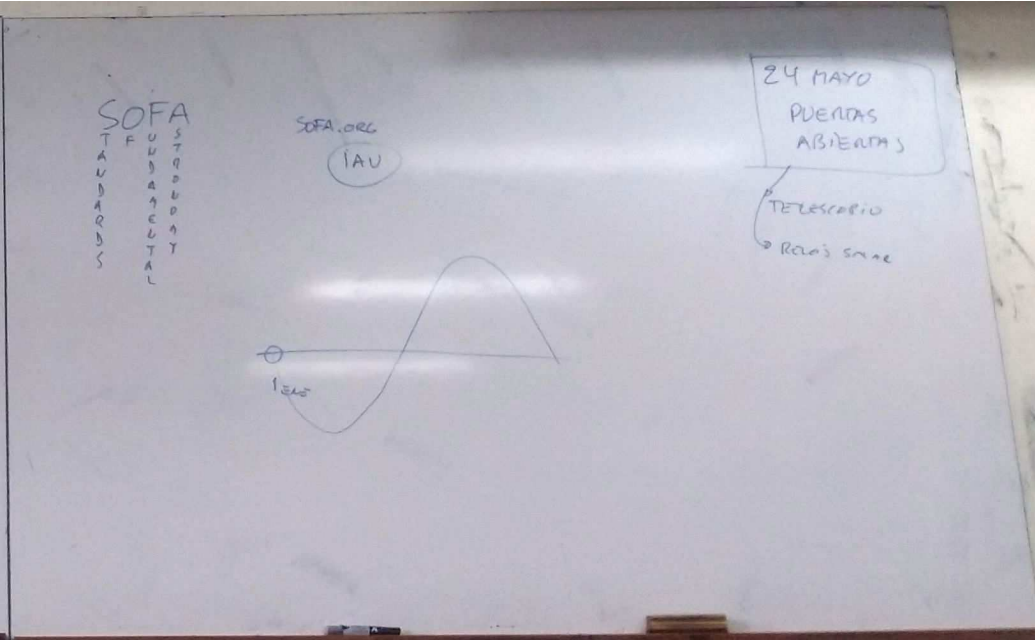 SOFA
STANDARDS
OF
FUNDAMENTAL
ASTRONOMY
SOFA.ORG
IAU
24 MAYO
PUERTAS
ABIERTAS
TELESCOPIO
RELOJ SOLAR
1 ENE